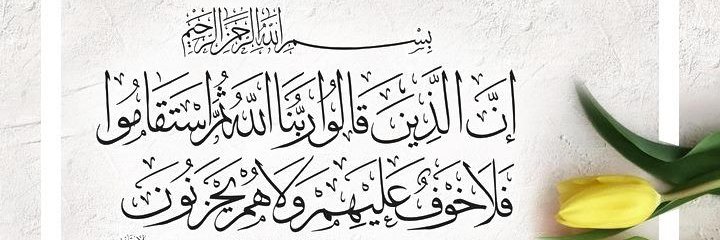 بِسْمِ اللَّهِ الرَّحْمَنِ الرَّحِيمِ
إِنَّ الَّذِينَ قَالُوا رَبُّنَا اللَّهُ ثُمَّ اسْتَقَامُوا
فَلَا خَوْفٌ عَلَيْهِمْ وَلَا هُمْ يَحْزَنُونَ